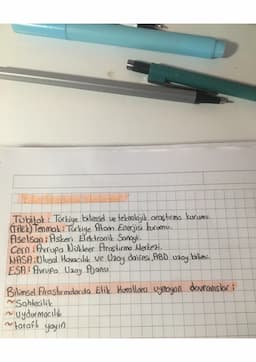 Tübitak: Türkiye bilimsel ve teknolojik araştırma kurumu.
(TAEK) Tenmak: Türkiye Atom Enerjisi kurumu.
Aselsan: Askeri Elektronik Sanayi.
Cern: Avrupa Nükleer Araştırma Merkezi.
NASA: Ulusal Havacılık ve Uzay dairesi, ABD uzay
ESA: Avrupa Uzay Ajansı
Bilimsel Araştırmalarda Etik Kurallara uymayan davranışlar:
~ Sahtecilik
~ Uydurmacılık
~ taraflı yayın